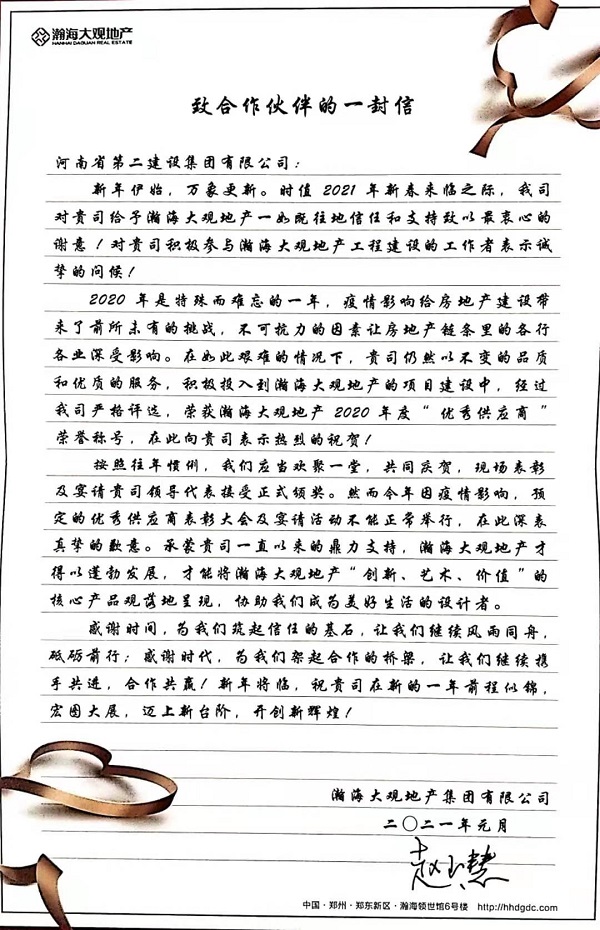 瀚海大观地产
HANHAI DAGUAN REAL ESTATE
致合作伙伴的一封信
河南省第二建设集团有限公司：
新年伊始，万象更新。时值 2021 年新春来临之际，我司
对贵司给予瀚海大观地产一如既往地信任和支持致以最衷心的
谢意！对贵司积极参与瀚海大观地产工程建设的工作者表示诚
挚的问候！
2020 年是特殊而难忘的一年，疫情影响给房地产建设带
来了前所未有的挑战，不可抗力的因素让房地产链条里的各行
各业深受影响。在如此艰难的情况下，贵司仍然以不变的品质
和优质的服务，积极投入到瀚海大观地产的项目建设中，经过
我司严格评选，荣获瀚海大观地产 2020 年度“优秀供应商”
荣誉称号，在此向贵司表示热烈的祝贺！
按照往年惯例，我们应当欢聚一堂，共同庆贺，现场表彰
及宴请贵司领导代表接受正式颁奖。然而今年因疫情影响，预
定的优秀供应商表彰大会及宴请活动不能正常举行，在此深表
真挚的歉意。承蒙贵司一直以来的鼎力支持，瀚海大观地产才
得以蓬勃发展，才能将瀚海大观地产“创新、艺术、价值”的
核心产品观落地呈现，协助我们成为美好生活的设计者。
感谢时间，为我们筑起信任的基石，让我们继续风雨同舟，
砥砺前行；感谢时代，为我们架起合作的桥梁，让我们继续携
手共进，合作共赢！新年将临，祝贵司在新的一年前程似锦，
宏图大展，迈上新台阶，开创新辉煌！
瀚海大观地产集团有限公司
二〇二一年元月
赵玉慧
中国·郑州·郑东新区·瀚海领世馆6号楼 http://hhdgdc.com